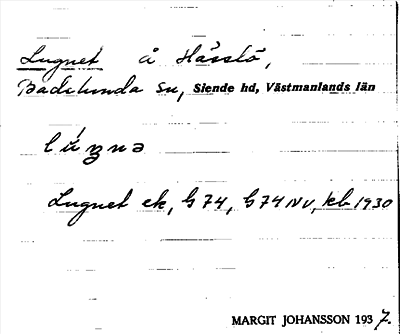 Lugnet å Hässlö,
Badelunda sn, Siende hd, Västmanlands län
lúŋnə
Lugnet ek, G 74, G 74 NV, kb 1930
MARGIT JOHANSSON 1937.